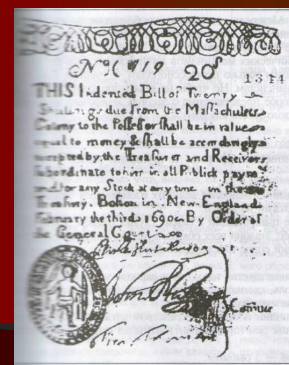 Nº (919 20ˢ 1314
THIS Indented Bill of Twenty
Shillings due from the Massachusets
Colony to the Possessor shall be in value
equal to money & shall be accordingly
accepted by the Treasurer and Receivers
subordinate to him in all Publick paym.ᵗˢ
and for any Stock at any time in the
Treasury. Boston in New-England
February the third 1690. By Order of
the General Court
Comitee